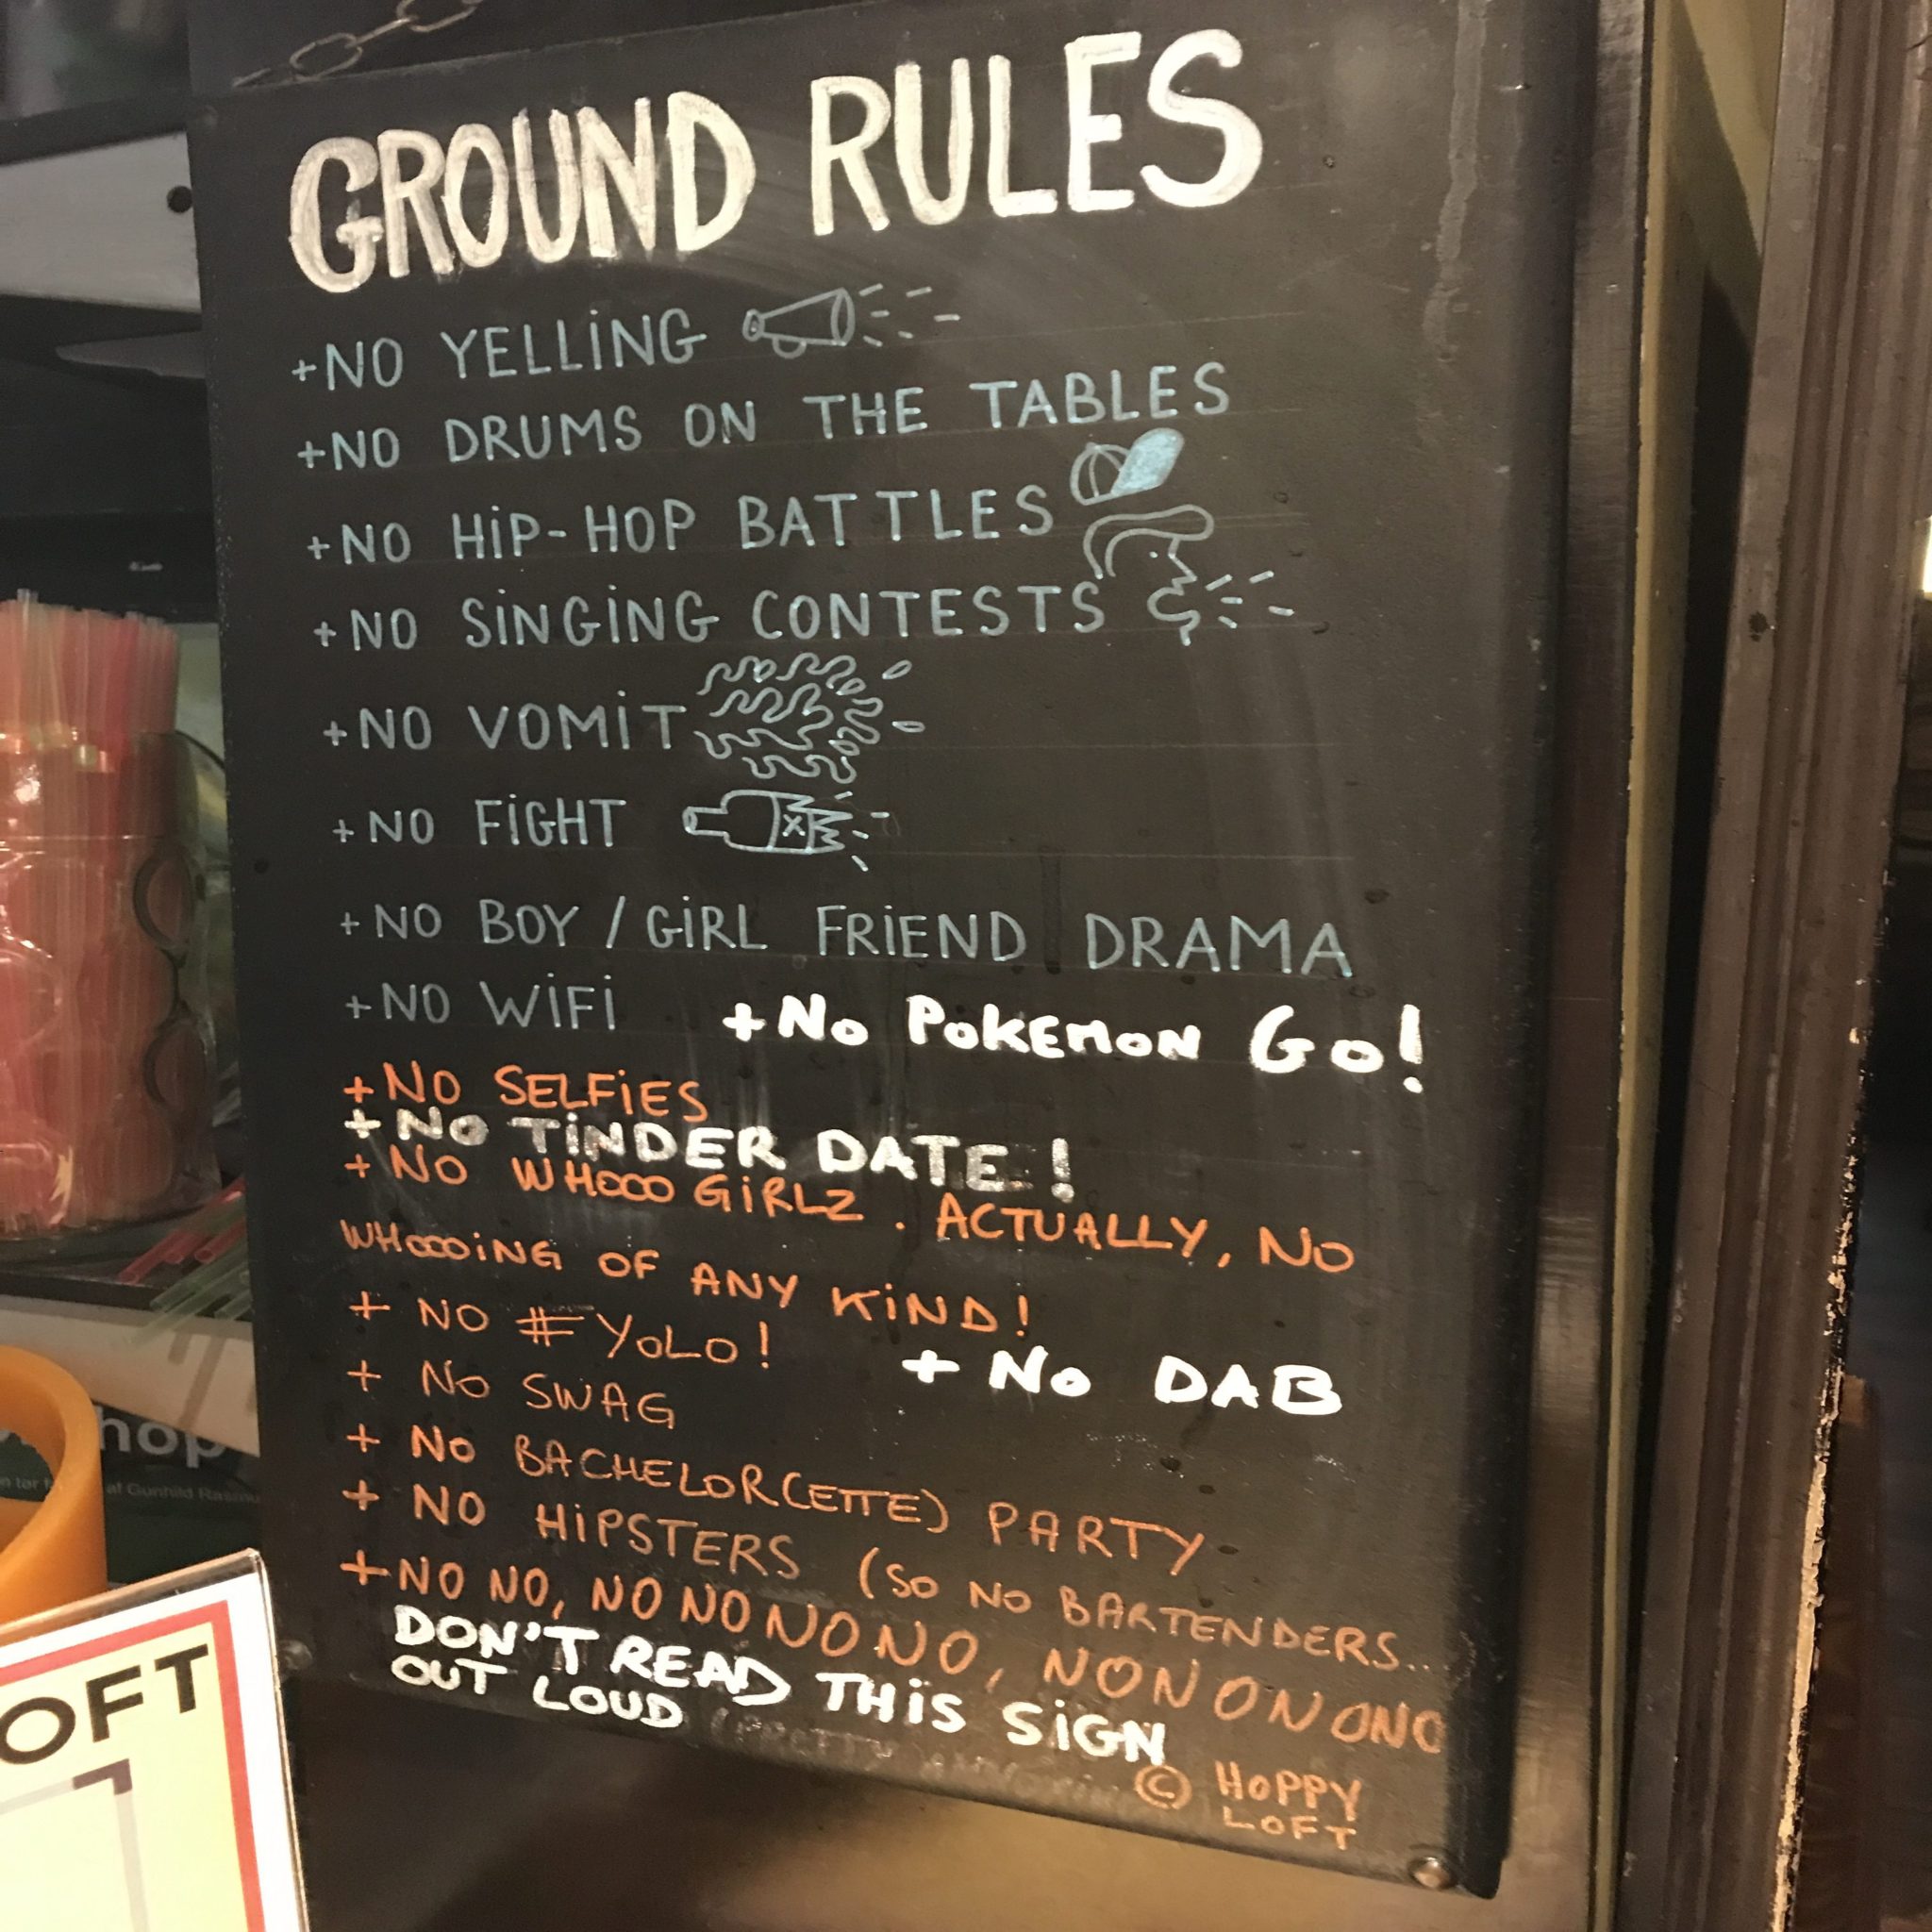 GROUND RULES
+NO YELLING
+NO DRUMS ON THE TABLES
+NO HIP-HOP BATTLES
+NO SINGING CONTESTS
+NO VOMIT
X
+NO FIGHT
+NO BOY/GIRL FRIEND DRAMA
+NO WIFI
+No POKEMON GO!
+NO SELFIES
+NO TINDER DATE!
+NO WHOOO GIRLZ. ACTUALLY, NO
WHOOOING OF ANY KIND!
+ NO #YOLO!
+ No DAB
+ NO SWAG
+ NO BACHELOR(ETTE) PARTY
+ NO HIPSTERS (SO NO BARTENDERS...
+NO NO, NO NO NO NO, NONONONO
DON'T READ THIS SIGN
OUT LOUD (PRETTY ANNOYING)
© HOPPY
LOFT
hop
at Gunhild
OFT